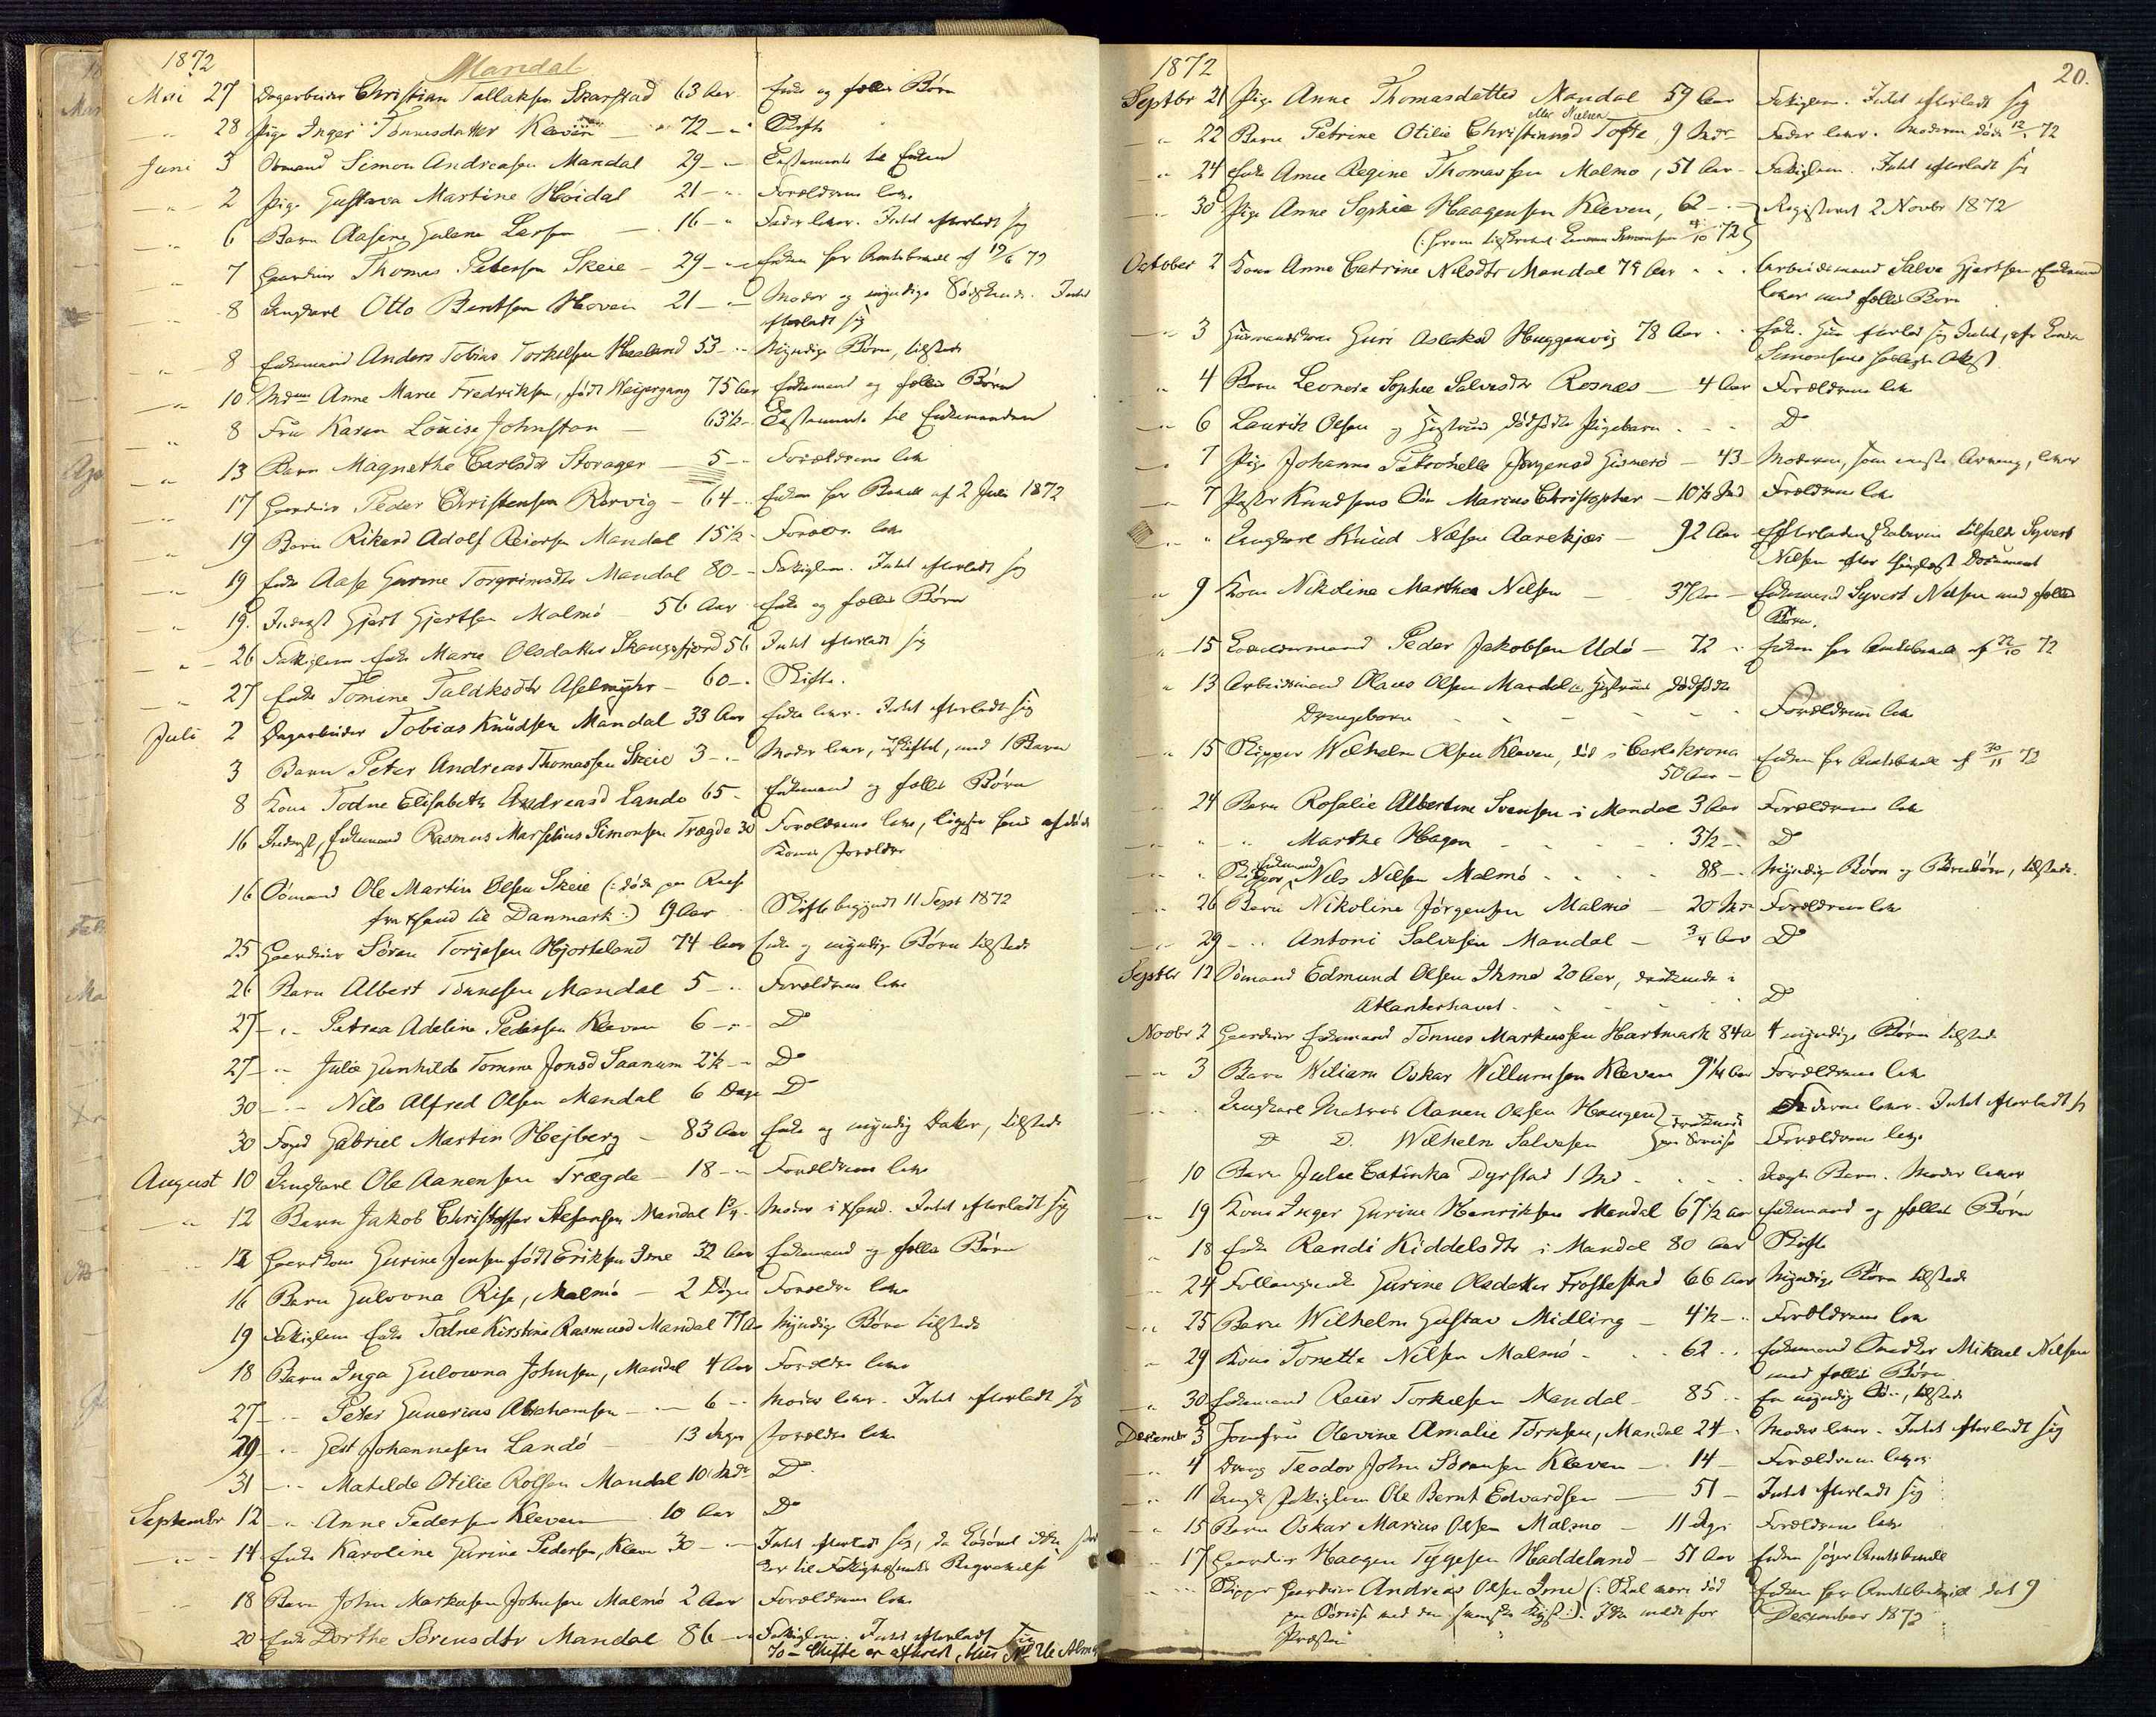 1872
Mandal
Mai 27 Dagarbeider Christian Tallaksen Skarstad 63 Aar Enke og fælles Børn
" 28 Pige Inger Tønnesdatter Kleven 72 - " Skifte
Juni 3 Sømand Simon Andreasen Mandal 29 - " Testamente til Enken
" 2 Pige Gustava Martine Høidal 21 - " Forældrene leve
" 6 Barn Aasine Gulene Larsen 16 - " Fader lever. Intet efterladt sig
" 7 Gaardbr Thomas Petersen Skeie - 29 - " Enken har Amtsbevill af 19/6 72
" 8 Ungkarl Otto Berntsen Hoven 21 - " Moder og myndige Sødskende. Intet
efterladt sig
" 8 Enkemand Anders Tobias Torkelsen Haaland 53 - " Myndige Børn, tilstede
" 10 Mdme Anne Marie Fredriksen, født Weiergang 75 Aar Enkemand og fælles Børn
" 8 Fru Karen Louise Johnston 63½ - Testamente til Enkemanden
" 13 Barn Magnethe Carlsdtr Storager - 5 - " Forældrene leve
" 17 Gaardbr Peder Christensen Rørvig - 64 - " Enken har Bevill af 2 Juli 1872
" 19 Barn Rikard Adolf Reiersen Mandal 15½ - Forældr. leve
" 19 Enke Aase Gurine Torgrimsdtr Mandal 80 - " Fattiglem. Intet efterladt sig
" 19. Inderst Gjert Gjertsen Malmø - 56 Aar Enke og fælles Børn
" 26 Fattiglem Enke Marie Olsdatter Skougsfjord 56 Intet efterladt sig
" 27 Enke Tomine Taldksdtr 60 - " Skifte.
Juli 2 Dagarbeider Tobias Knudsen Mandal 33 Aar Enke lever. Intet efterladt sig
3 Barn Peter Andreas Thomassen Skeie 3 - " Moder lever, uskiftet, med 1 Barn
8 Kone Todne Elisabeth Andreasd Lande 65 - Enkemand og fælles Børn
16 Inderst, Enkemand Rasmus Marselius Simonsen Trægde 30 Forældrene leve, ligesaa hans afdøde
Kones Forældre
16 Sømand Ole Martin Olsen Skeie (: døde paa Reise
fra Xsand til Danmark :) 19 Aar Skifte begyndt 11 Sept 1872
25 Gaardbr Søren Torjesen Hjorteland 74 Aar Enke og myndige Børn tilstede
26 Barn Albert Tønnesen Mandal 5 - " Forældrene leve
27 - " Petrea Adeline Pedersen Kleven 6 - " Do
27 - " Julie Gunhilde Tomine Jonsd Saanum 2½ - " Do
30 - " Nils Alfred Olsen Mandal 6 Dage Do
30 Foged Gabriel Martin Hejberg - 83 Aar Enke og myndig Datter, tilstede
August 10 Ungkarl Ole Aanensen Trægde - 18 - " Forældrene leve
" 12 Barn Jakob Christoffer Stefansen Mandal 1¾ - Moder i Xsand. Intet efterladt sig
12 Gaardkone Gurine Jensen født Eriksen Ime 32 Aar Enkemand og fælles Børn
16 Barn Gulovna Rise, Malmø - 2 Døgn Forældre leve
19 Fattiglem Enke Todne Kirstine Rasmusd Mandal 77 Aar Myndige Børn tilstede
18 Barn Inga Gulowna Johnsen, Mandal 4 Aar Forældre leve
27 - " Peter Gunerius Abrahamsen - 6 - " Moder lever. Intet efterladt sig
29 - " Gest Johannesen Landø - 13 Dage Forældre leve
31 - " Matilde Otilie Rolfsen Mandal 10 Mdr Do
September 12 - " Anne Pedersen Kleven 10 Aar Do
" 14 Enke Karoline Gurine Pedersen, Kleven 30 - " Intet efterladt sig, da Løsøret
til Fattigvæsenets
18 Barn John Markusen Johnsen Malmø 2 Aar Forældrene leve
20 Enke Dorthe Sørensdtr Mandal 86 - " Fattiglem. Intet efterladt sig
Skifte er afholdt, Huus

1872
20.
Septbr 21 Pige Anne Thomasdatter Mandal 59 Aar Fattiglem. Intet efterladt sig
eller Nielsen
" 22 Barn Petrine Otilie Christiansd Tofte, 9 Mdr Fader lever. Moderen døde 12/1 72
" 24 Enke Anne Regine Thomassen Malmø, 51 Aar Fattiglem. Intet efterladt sig
" 30 Pige Anne Sophie Haagensen Kleven, 62 - Registreret 2 Novbr 1872
October 2 Kone Anne Catrine Nilsdtr Mandal 74 Aar Arbeidsmand Salve Gjertsen Enkemand
lever med fælles Børn
" 3 Huusmandskone Guri Aslaksd Huggenvig 78 Aar Enke. Hun efterlod sig Intet, efter
Simonsens
" 4 Barn Leonora Sophie Salvesdtr Rosnes - 4 Aar Forældrene leve
" 6 Laurits Olsen og Hustrues dødfødte Pigebarn Do
" 7 Pige Johanne Petronelle Jørgensd Gismerø - 43 - Moderen, som eneste Arving, lever
" 7 Pastor Knudsens Søn Marius Christopher - 10½ Md Forældrene leve
" " Ungkarl Knud Nilsen Aarekjær - 92 Aar Efterladenskaberne tilfaldt Syvert
Nilsen efter thinglæst Document
" 9 Kone Nikoline Marthea Nilsen 37 Aar Enkemand Syvert Nilsen med fælles
Børn.
" 15 Peder Jakobsen Udø - 72 " Enken har Amtsbevill af 22/10 72
" 13 Arbeidsmand Olaus Olsen Mandal & Hustrues dødfødte
Drengebarn Forældrene leve
" 15 Skipper Wilhelm Olsen Kleven, død i Carlskrona
50 Aar - Enken har Amtsbevill af 30/11 72
" 24 Barn Rosalie Albertine Svensen i Mandal 3 Aar Forældrene leve
" " " Marthe Hagen 3½ - " Do
" " Skipper Enkemand Nils Nilsen Malmø 88 - " Myndige Børn og Børnebørn, tilstede.
" 26 Barn Nikoline Jørgensen Malmø - 20 Mdr Forældrene leve
" 29 - " Antoni Salvesen Mandal - ¾ Aar Do
Septbr 12 Sømand Edmund Olsen Ihme 20 Aar, druknede i
Atlanterhavet Do
Novbr 2 Gaardbr Enkemand Tønnes Markussen Hartmark 84 A 4 myndige Børn tilstede
" 3 Barn Wiliam Oskar Willumsen Kleven 9¼ Aar Forældrene leve
" Ungkarl Matros Aanen Olsen Haugen } druknede Faderen lever. Intet efterladt sig
Do Do Wilhelm Salvesen } paa Søreise Forældrene leve
10 Barn Julie Catinka Dyrstad 1 Md Uægte Barn. Moder lever
" 19 Kone Inger Gurine Henriksen Mandal 67½ Aar Enkemand og fælles Børn
" 18 Enke Randi Kiddelsdtr i Mandal 80 Aar Skifte
" 24 Gurine Olsdatter Frøstestad 66 Aar Myndige Børn tilstede
" 25 Barn Wilhelm Gustav Midling - 4½ - " Forældrene leve
" 29 Kone Tonette Nilsen Malmø 62 - " Enkemand Snedker Mikael Nilsen
med fælles Børn
" 30 Enkemand Reier Torkelsen Mandal - 85 - " En myndig Søn, tilstede
December 3 Jomfru Olevine Amalie Tørresen, Mandal 24 - Moder lever. Intet efterladt sig
" 4 Dreng Teodor John Sørensen Kleven - 14 - Forældrene lever
" 11 Ungk Fattiglem Ole Bernt Edvardsen 51 - Intet efterladt sig
" 15 Barn Oskar Marius Olsen Malmø - 11 Dge Forældrene leve
" 17 Gaardbr Haagen Tygesen Haddeland - 51 Aar Enken søger Amtsbevill
" " Skipper Gaardbr Andreas Olsen Ime (: Skal være død
paa Søreise ved den svenske Kyst :). Ikke meldt for
Præsten Enken har Amtsbevill dat 9
December 1872